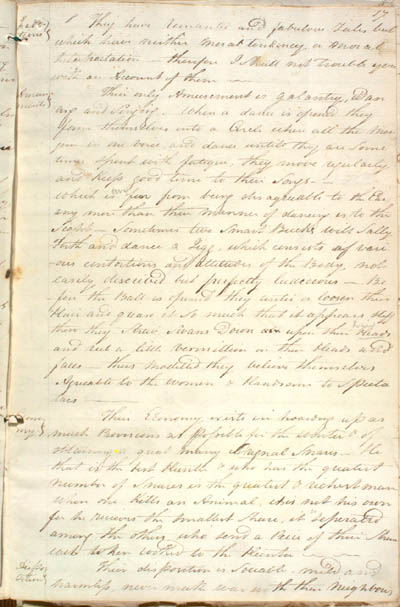 17
Tradi-
tions
They have romantic and fabulous Tales but
which have neither moral tendency, a moral
Interpretation — therefore I shall not trouble you
with an Account of them —
Amuse-
ments
Their only Amusement is galantry, Dan
cing and Singing. When a dance is opened they
form themselves into a Circle when all the Men
join in one voice, and dance untill they are some
times spent with fatigue, they move regularly
and keep good time to their Songs —
which is far from being disagreeable to the Ear
any more than their manner of dancing is to the
Sight — Sometimes two Smart Bucks will Sally
forth and dance a Jigg, which consists of vari-
ous contortions and attitudes of the Body, not
easily described but perfectly ludicrous — Be-
fore the Ball is opened they untie or loosen their
Hair and grease it so much that it appears stiff
then they Strew Swans Down upon their Heads
and put a little vermillion on their Heads and
faces — thus modelled they believe themselves
Agreeable to the Women & Handsome to Specta
tors —
Econo
my
Their Economy exists in hoarding up as
much Provisions as possible for the winter & of
obtaining a great many Orignal Snares — He
that is the best Hunter & who has the greatest
number of Snares is the greatest & richest man
when one kills an Animal, it is not his own
for he receives the smallest share, it is separated
among the others, who send a Piece of their Share
each to be cooked to the Hunter —
Dispo
sition
Their disposition is Sociable mild and
harmless, never make war with their Neighbours